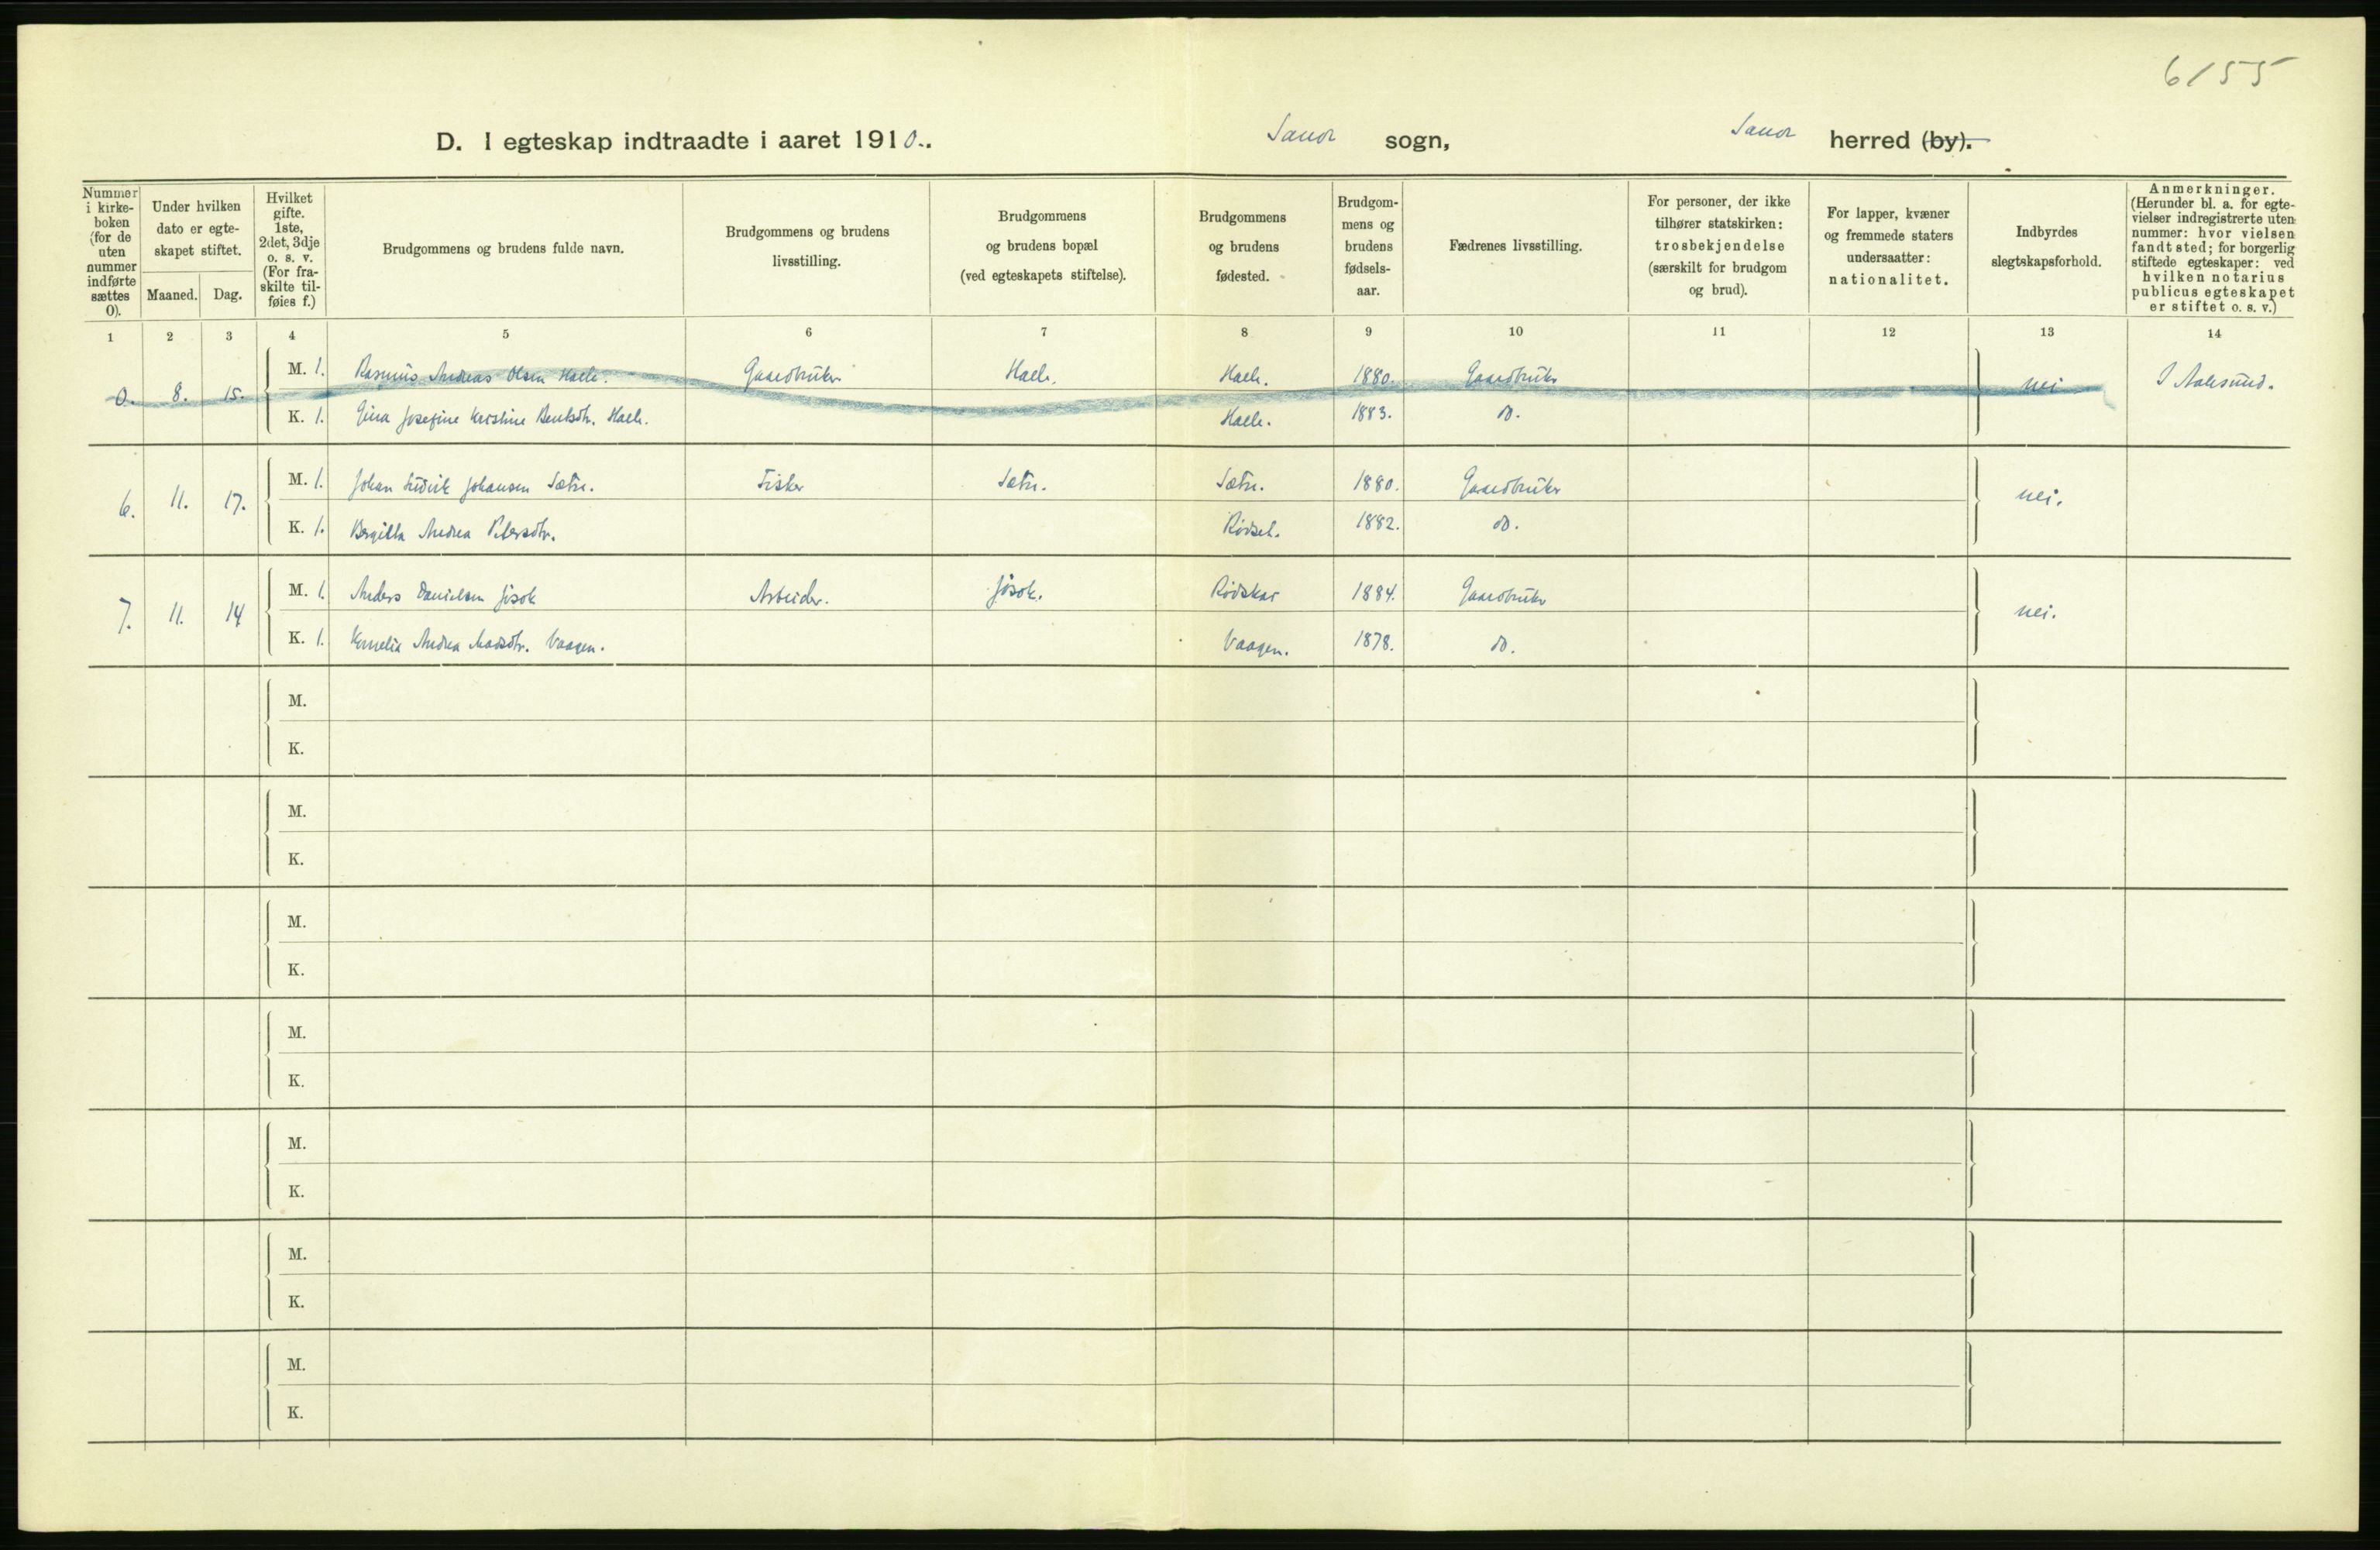 6/55
D. I egteskap indtraadte i aaret 1910. Sand sogn, Sand herred (by).
Nummer i kirkeboken (for de uten nummer indførte sættes 0).
Under hvilken dato er egteskapet stiftet.
Maaned. Dag.
Hvilket gifte. 1ste, 2det, 3dje o. s. v. (For fraskilte tilføies f.)
Brudgommens og brudens fulde navn.
Brudgommens og brudens livsstilling.
Brudgommens og brudens bopæl (ved egteskapets stiftelse).
Brudgommens og brudens fødested.
Brudgommens og brudens fødselsaar.
Fædrenes livsstilling.
For personer, der ikke tilhører statskirken: trosbekjendelse (særskilt for brudgom og brud).
For lapper, kvæner og fremmede staters undersaatter: nationalitet.
Indbyrdes slegtskapsforhold.
Anmerkninger. (Herunder bl. a. for egtevielser indregistrerte uten nummer: hvor vielsen fandt sted; for borgerlig stiftede egteskaper: ved hvilken notarius publicus egteskapet er stiftet o. s. v.)
1 2 3 4 5 6 7 8 9 10 11 12 13 14
0. 8. 15. M. 1. Rasmus Andreas Olsen Haele. Gaardbruker Haele. Haele. 1880. Gaardbruker nei I Aalesund.
K. 1. Gina Josefine Kristine Bentsdtr. Haele. Haele. 1883. do.
6. 11. 17. M. 1. Johan Ludvik Johansen Sætre. Fisker Sætre. Sætre. 1880. Gaardbruker nei.
K. 1. Bergitta Andrea Petersdtr. Rödset. 1882. do.
7. 11. 14 M. 1. Anders Danielsen Jösok Arbeider. Jösok. Rödskar 1884. Gaardbruker nei.
K. 1. Kornelia Andrea Madsdtr. Vaagen. Vaagen. 1878. do.
M.
K.
M.
K.
M.
K.
M.
K.
M.
K.
M.
K.
M.
K.